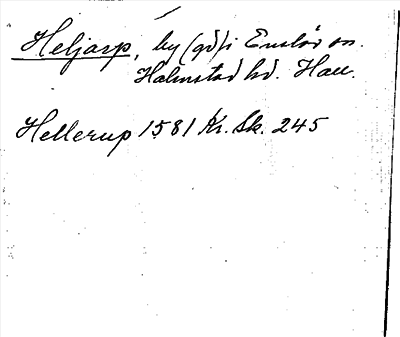 Heljarp, by (gd) i Enslöv sn.
Halmstad hd. Hall.
Hellerup 1581 Kr. Sk. 245